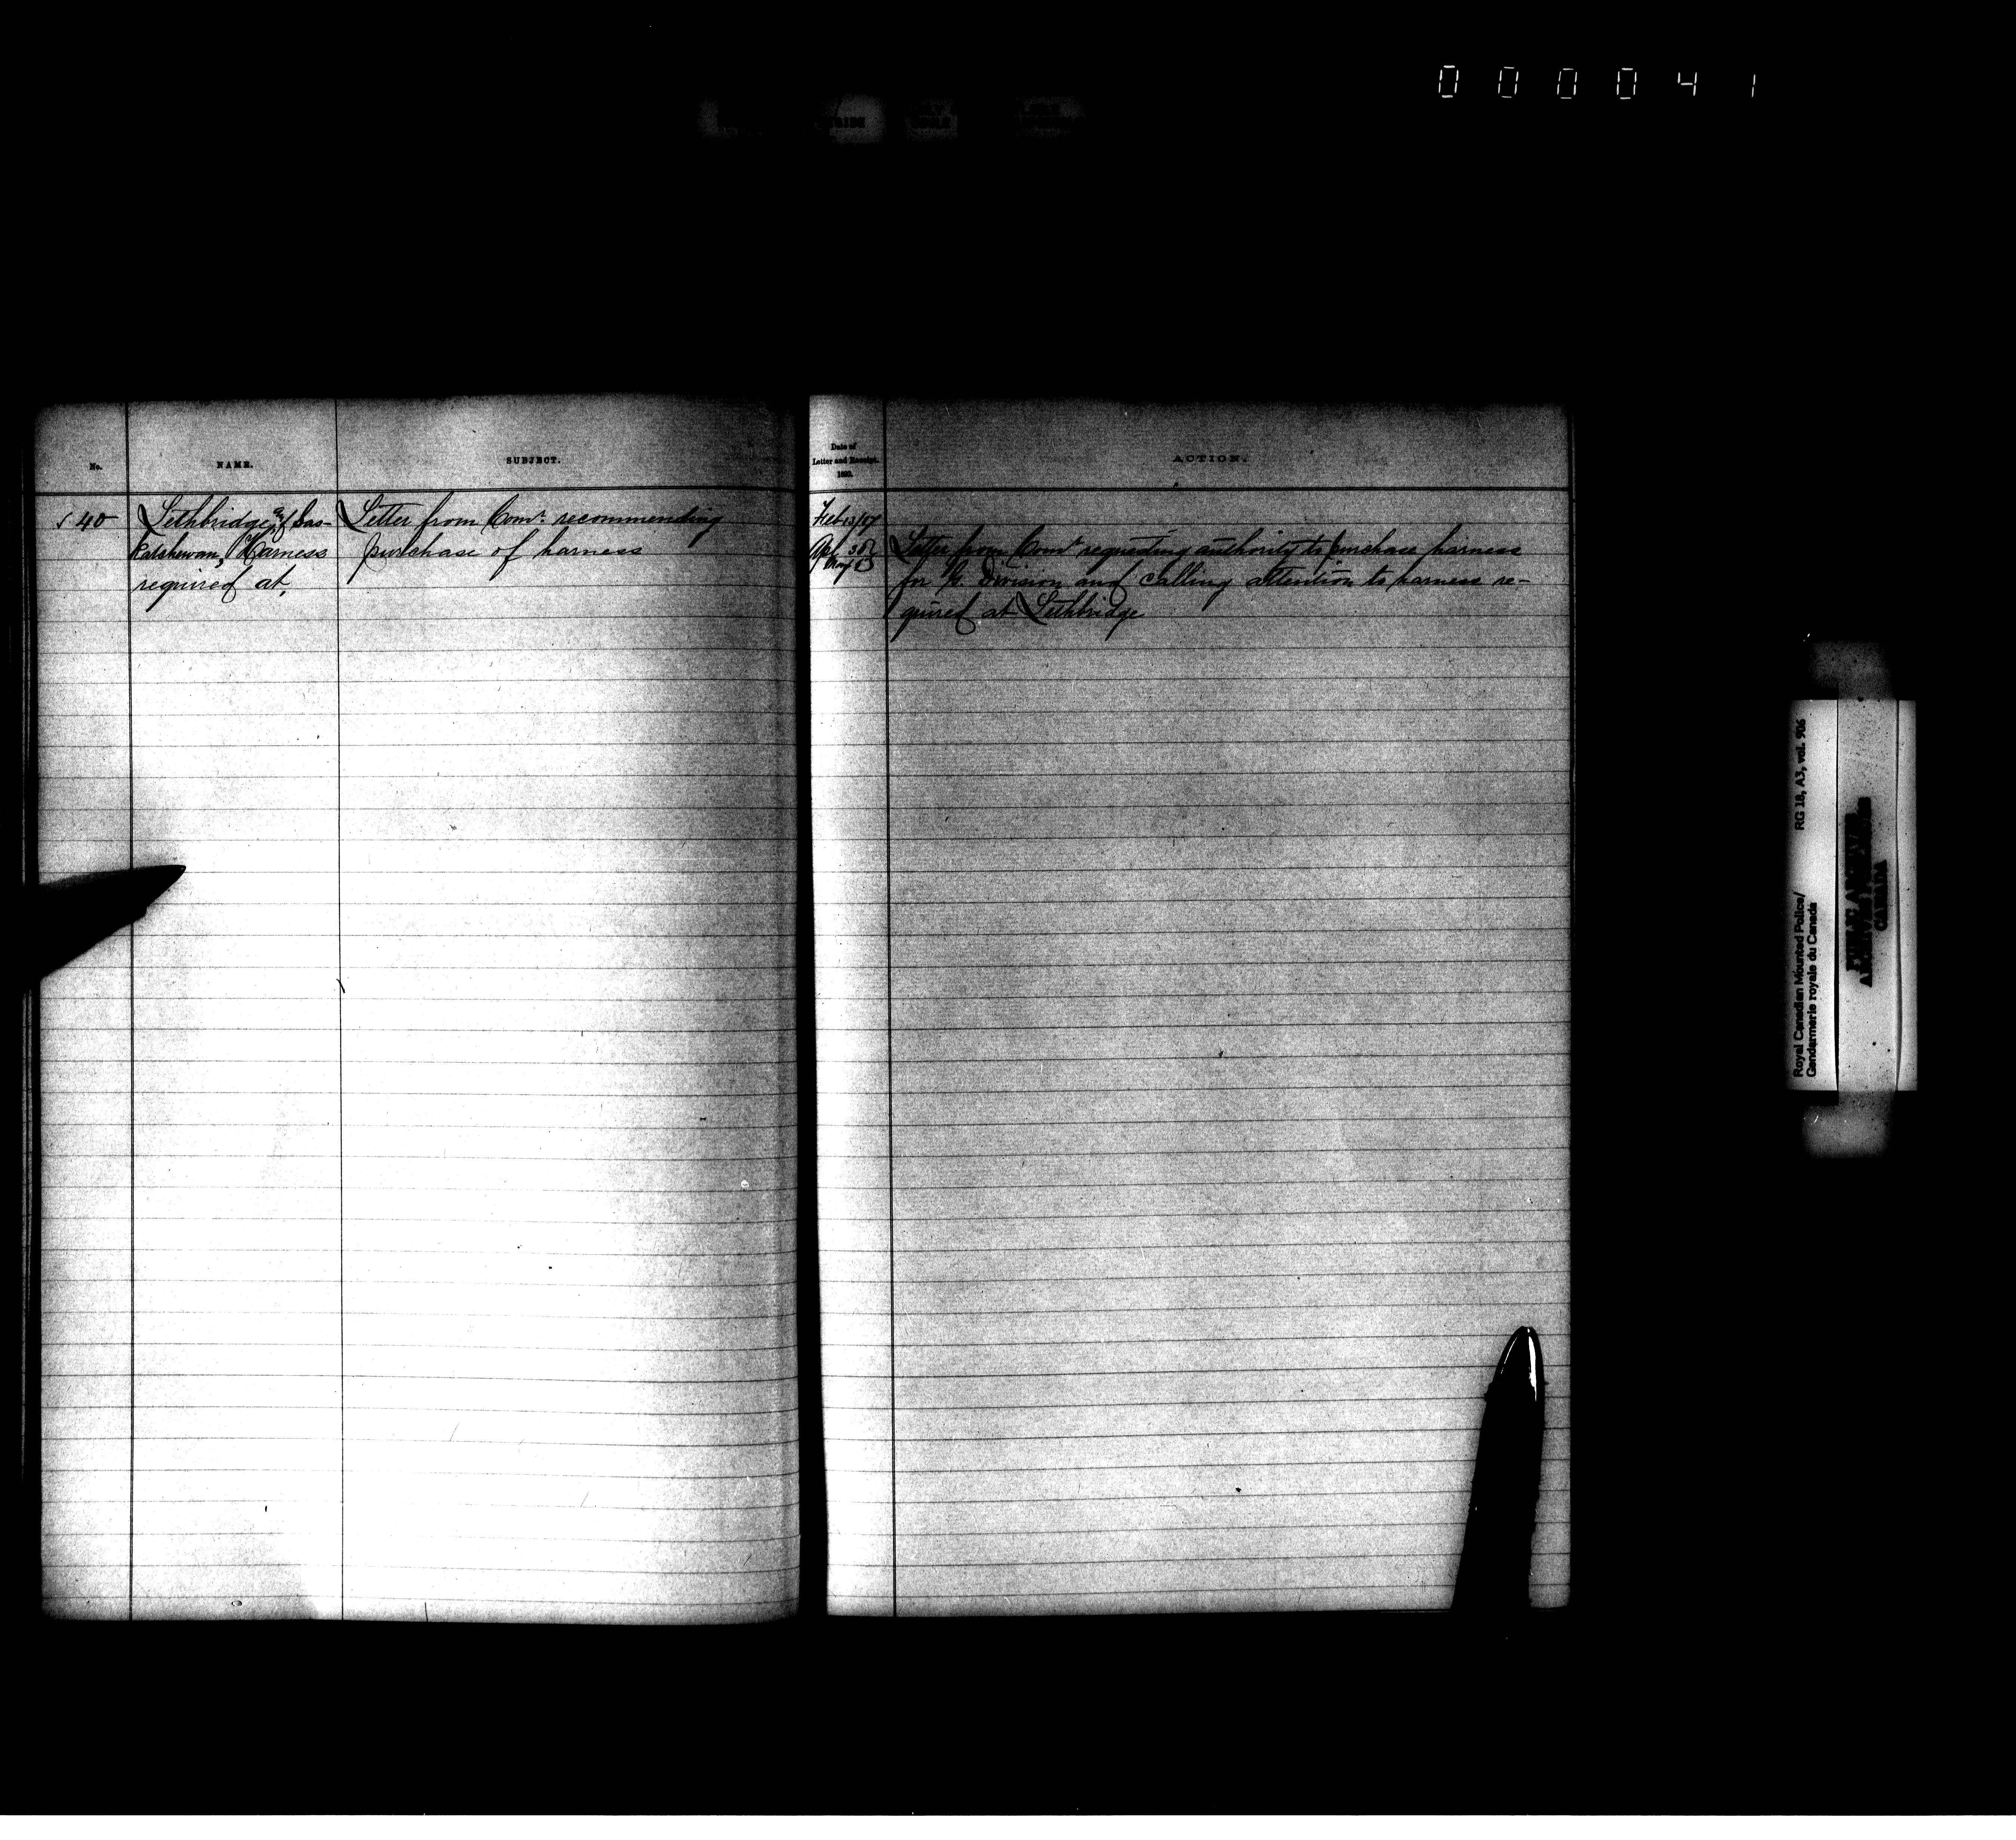 000041
No.
NAME.
SUBJECT.
Date of
Letter and Receipt.
ACTION.
40
Lethbridge & Sas-
katchewan, Harness
required at,
Letter from Comr. recommending
purchase of harness
Feb 13/17
Apl 30
May 5
Letter from Comr requesting authority to purchase harness
for G. Division and calling attention to harness re-
quired at Lethbridge
Royal Canadian Mounted Police/
Gendarmerie royale du Canada
RG 18, A3, vol. 906
PUBLIC ARCHIVES
ARCHIVES PUBLIQUES
CANADA